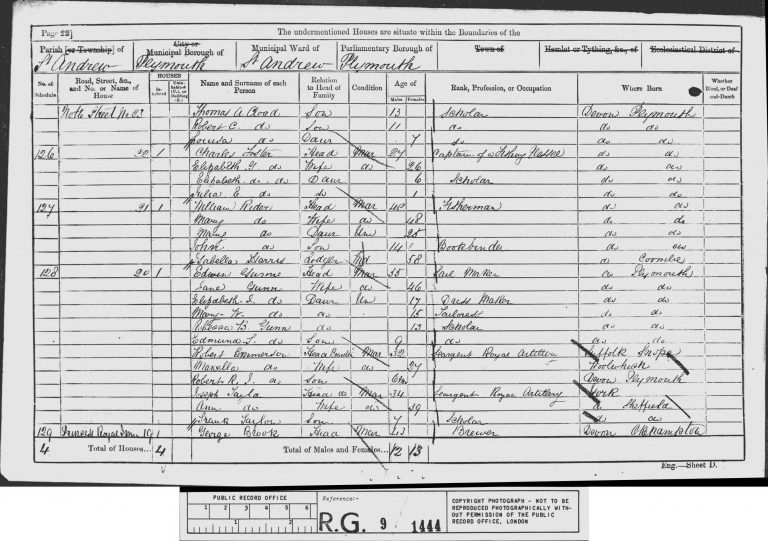 Page 22]
The undermentioned Houses are situate within the Boundaries of the
Parish [or Township] of
City or
Municipal Borough of
Municipal Ward of
Parliamentary Borough of
Town of
Hamlet or Tything, &c., of
Ecclesiastical District of
St Andrew Plymouth St Andrew Plymouth
No. of Schedule
Road, Street, &c., and No. or Name of House
HOUSES
Inhabited
Uninhabited (U.), or Building (B.)
Name and Surname of each Person
Relation to Head of Family
Condition
Age of
Males
Females
Rank, Profession, or Occupation
Where Born
Whether Blind, or Deaf-and-Dumb
Notte Street No 23 Thomas A Son 13 Scholar Devon Plymouth
Robert C. do Son 11 do do do
Louisa do Daur 7 do do do
126 1 Charles Foster Head Mar 27 Captain of a do do
Elizabeth do Wife do 26 do do
Elizabeth do Daur 6 Scholar do do
Julia E. do do 1 do do
127 21 1 William Rider Head Mar 40 Fisherman do do
Mary do Wife do 48 do do
Mary do Daur Un 25 do do
John do Son 14 Bookbinder do do
Isabella Harris Lodger 58 do Coombe
128 20 1 Edwin Head Mar 35 Sail Maker do Plymouth
Jane Gunn Wife do 46 do do
Elizabeth J. do Daur Un 17 Dress Maker do do
Mary W. do do 15 Tailoress do do
B. Gunn do 13 Scholar do do
Edmund S. do Son 9 do do do
Robert Emmerson Head Mar 32 Sargent Royal Artillery Suffolk Snape
do Wife do 27 Woolwich
Robert R. J. do Son Devon Plymouth
Joseph Head do Mar 34 Seargent Royal Artillery York
Ann do Wife do 39 do Sheffield
Frank Taylor Son 7 Scholar do do
129 Royal Inn 19 1 George Brook Head Mar 43 Brewer Devon Okehampton
4 Total of Houses... 4 Total of Males and Females... 12 13
Eng.—Sheet D.
PUBLIC RECORD OFFICE
1 2 3 4 5 6
1 2
Reference:-
R.G. 9 1444
COPYRIGHT PHOTOGRAPH - NOT TO BE
REPRODUCED PHOTOGRAPHICALLY WITH-
OUT PERMISSION OF THE PUBLIC
RECORD OFFICE, LONDON